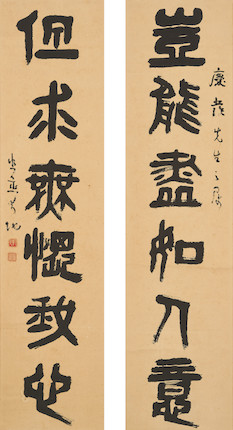 先生之屬
豈能盡如人意
但求無愧我心